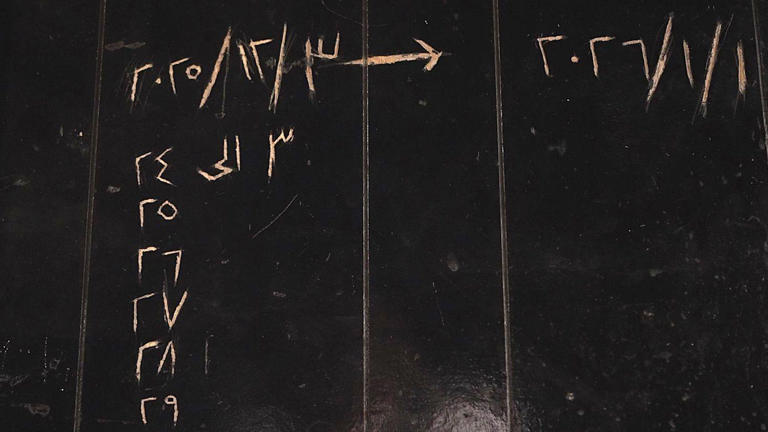 ٢٠٢٥/١٢/٣ → ٢٠٢٦/١/١
٢٤ الى ٣
٢٥
٢٦
٢٧
٢٨
٢٩